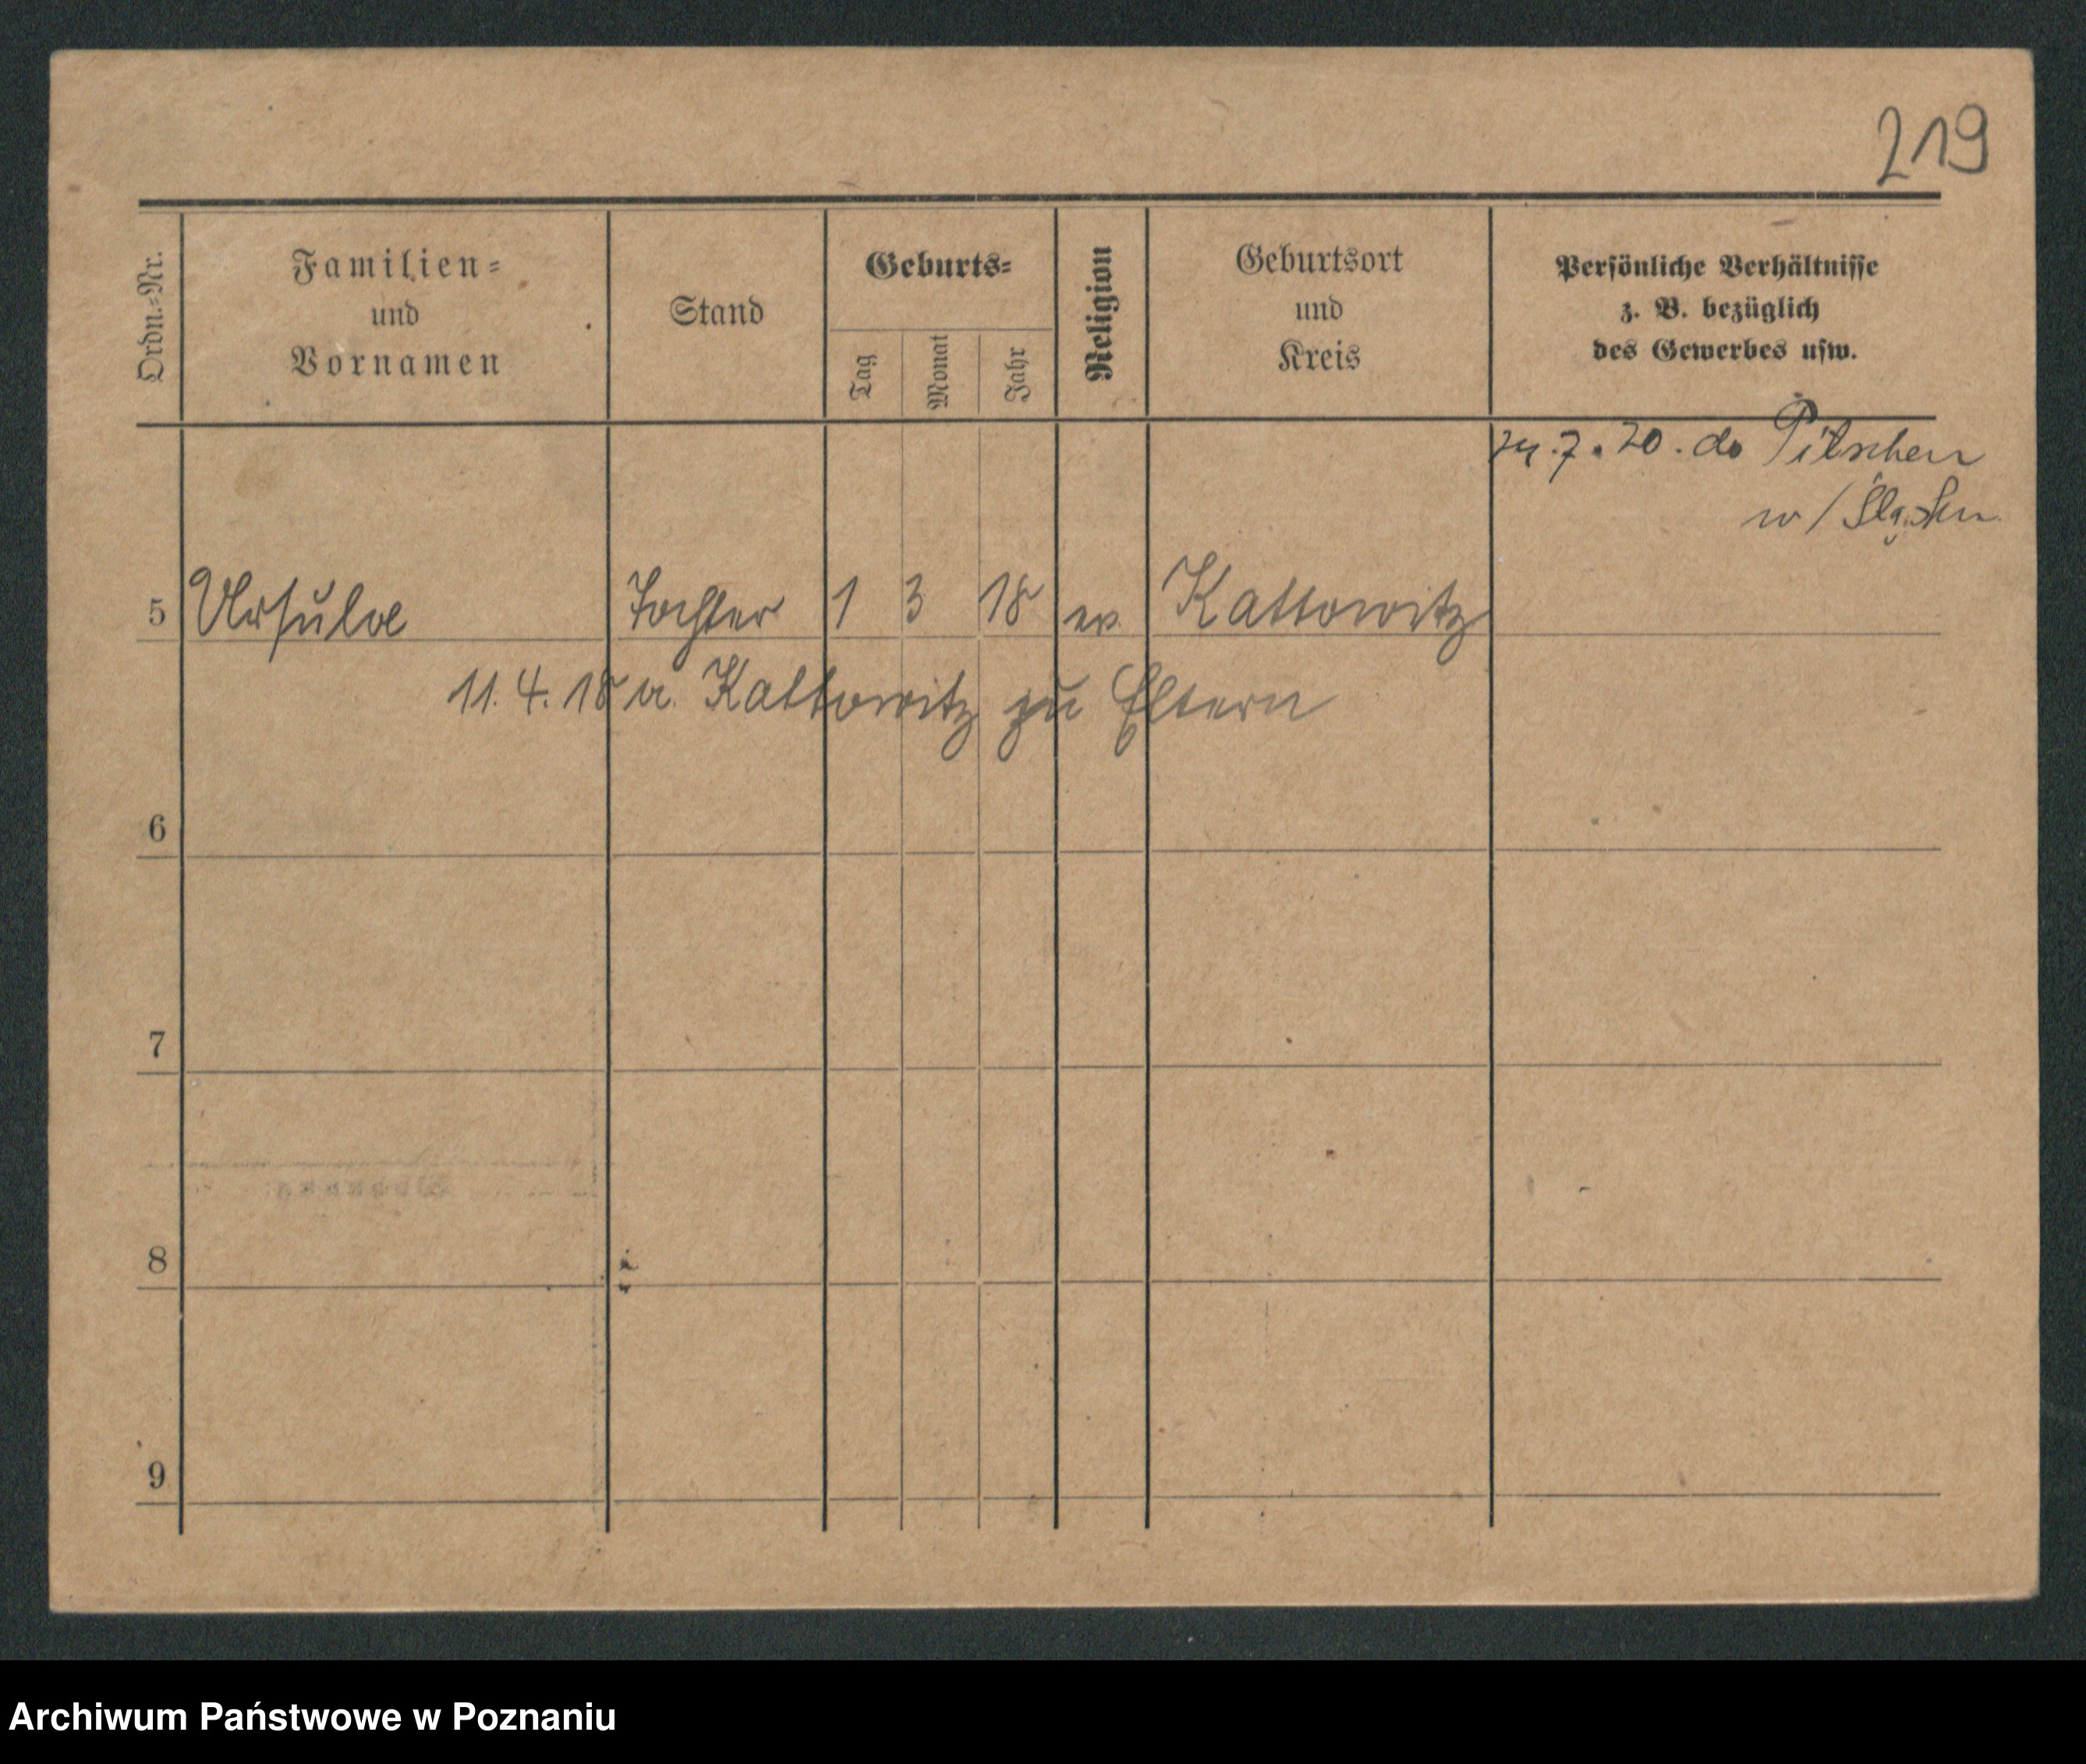 219
Ordn.-Nr.
Familien-
und
Vornamen
Stand
Geburts-
Tag
Monat
Jahr
Religion
Geburtsort
und
Kreis
Persönliche Verhältnisse
z. B. bezüglich
des Gewerbes usw.
7. 20. do Pitschen
w/
5 Ursula Tochter 1 3 18 ev. Kattowitz
11. 4. 18 a. Kattowitz zu Eltern
6
7
8
9
Archiwum Państwowe w Poznaniu